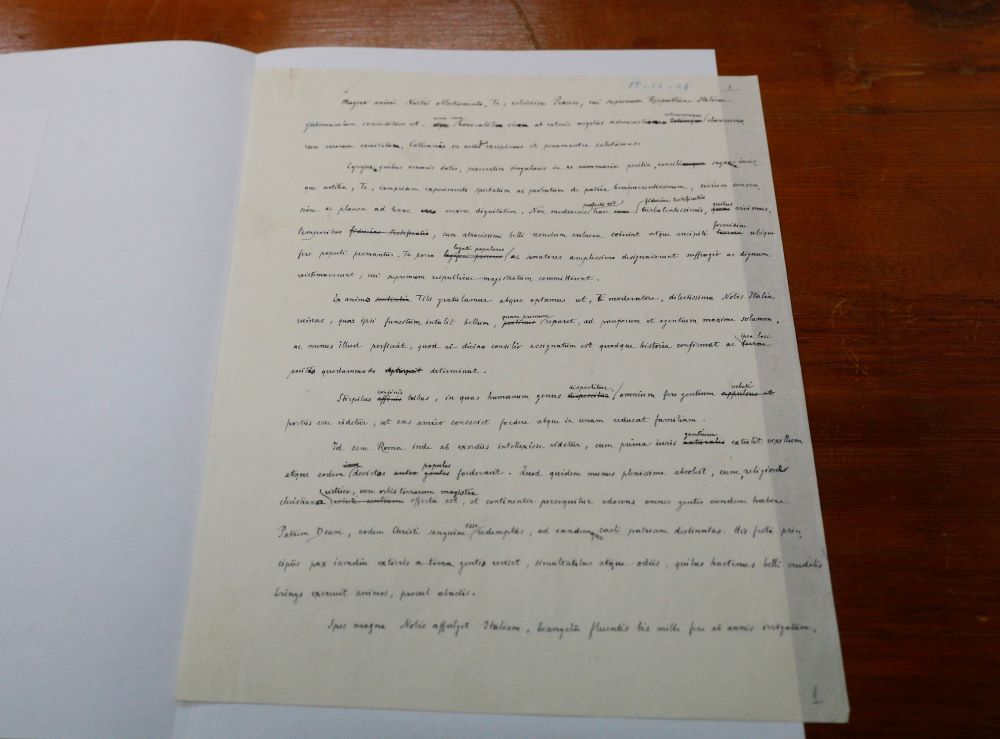 15-12-48
1
Magno animi Nostri oblectamento, Te, celsissime Praeses, cui supremum Reipublicae Italicae
gubernaculum concreditum est, ab ceteris negotiis administrandis clarissimo
rum virorum comitatum, Vaticanis in aedibus recipimus et peramanter salutamus.
Egregiae, quibus ornaris dotes, praesertim singularis in re nummaria peritia, sagax iuris
que notitia, Te, iampriam experimento spectatum ac probatum de patria benemerentissimum, civium consen
sione ac plausu ad hanc evexere dignitatem. Non mediocris haec profecto est fiduciae testificatio turbulentissimis, quibus utimur,
temporibus fiduciae testificatio, cum atrocissimi belli nondum vulnera coierint atque ancipiti formidine terrore ubique
fere populi premantur. Te porro legati populares ac senatores amplissimo designaverunt suffragio ac dignum
existimaverunt, cui supremum reipublicae magistratum committerent.
Ex animo Tibi gratulamur atque optamus ut, Te moderatore, dilectissima Nobis Italia
ruinas, quas ipsi funestum intulit bellum, quam primum protinus reparet, ad pauperum et egentium maxime solamen,
ac munus illud perficiat, quod ei divino consilio assignatum est quodque historia confirmat ac ipsa loci terrae
positio quodammodo determinat.
Stirpibus confinis affinis tribus, in quas humanum genus dispertitur, omnium fere gentium veluti appulsus et
portus esse videtur, ut eas amico consociet foedere atque in unam reducat familiam.
Id sane Roma inde ab exordiis intellexisse videtur, cum prima iuris gentium naturalis extulit vexillum
atque eodem iam devictos antea gentes populos foederavit. Quod quidem munus plenissime absolvit, cum, religionis
christianae victrice, vere orbis terrarum magistra effecta est, et continenter persequitur edocens omnes gentes eundem habere
Patrem Deum, eodem Christi sanguine esse redemptas, ad eandemque caeli patriam destinatas. His freta prin
cipiis pax iamdiu extorris a terra gentes reviset, simultatibus atque odiis, quibus hactenus belli crudelis
Erinys exacuit animos, procul abactis.
Spes magna Nobis affulget Italiam, Evangelii fluentis bis mille fere ab annis irrigatam,
1